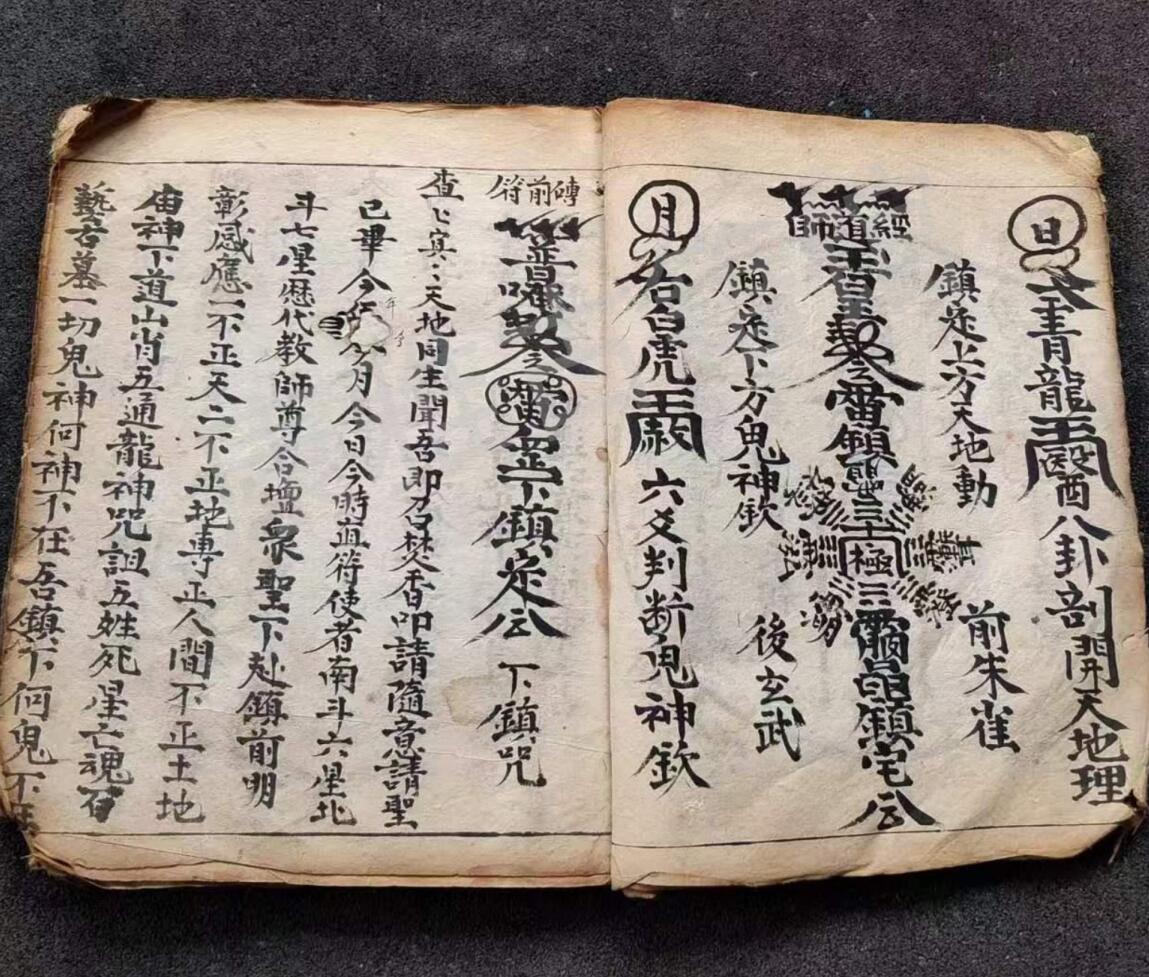 日
青龍
八卦剖開天地理
鎮定上方天地動
前朱雀
經道師
玉皇
雷鎮
極
鎮宅公
鎮定下方鬼神欽
後玄武
月
右白虎
六爻判断鬼神欽
磚前符
普唵
雷
下鎮定公
下鎮咒
查〻冥〻天地同生聞吾即召焚香叩請隨意請聖
已畢今
年
月今日今時直符使者南斗六星北
斗七星歷代教師尊合壇眾聖下赴鎮前明
彰感應一不正天二不正地專正人間不正土地
宙神下道山肖五通龍神咒詛五姓死星亡魂百
藝古墓一切鬼神何神不在吾鎮下何鬼不